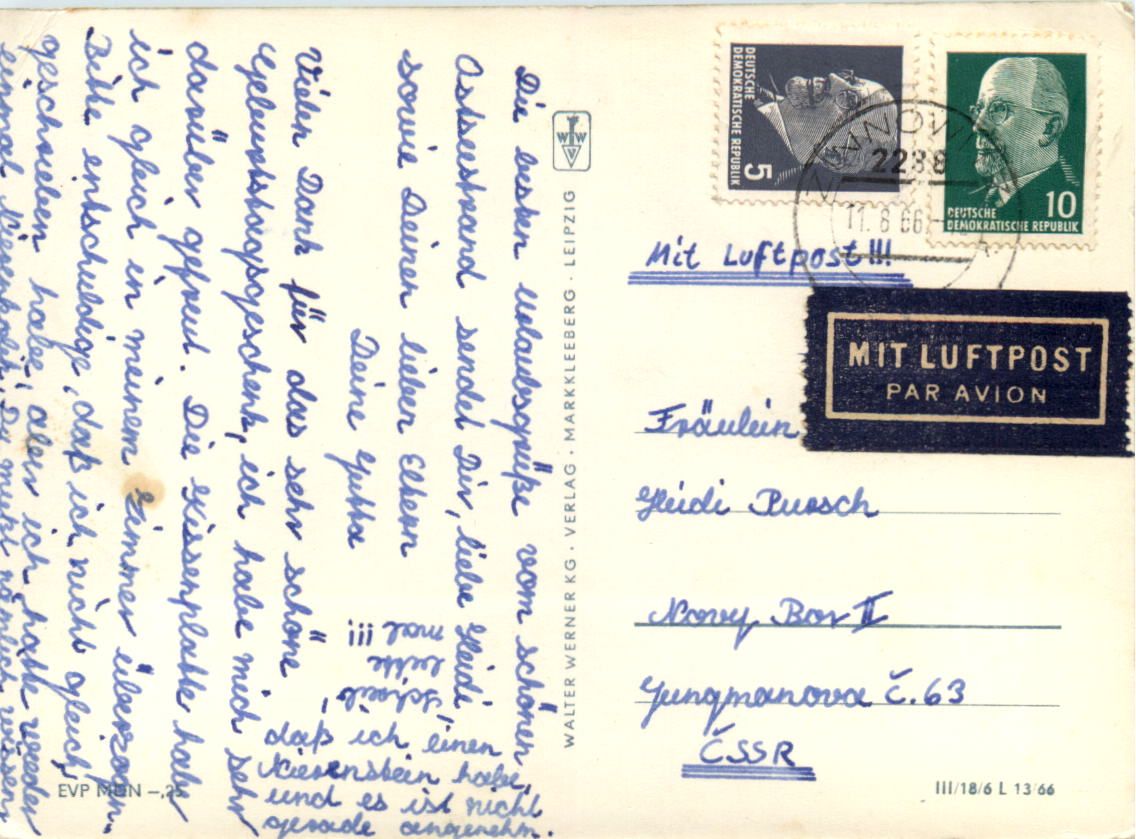 Die besten Urlaubsgrüße vom schönen
Ostseestrand sendet Dir, liebe Heidi,
sowie Deinen lieben Eltern
Deine Jutta
Vielen Dank für das sehr schöne
Geburtstagsgeschenk, ich habe mich sehr
darüber gefreut. Die Kissenplatte habe
ich gleich in meinem Zimmer überzogen.
Bitte entschuldige, daß ich nicht gleich
geschrieben habe, aber ich hatte wieder
einmal Nierenkolik. Du mußt nämlich wissen
daß ich einen
Nierenstein habe,
und es ist nicht
gerade angenehm.
Schreib
bitte
mal !!!
EVP MDN –,25
WALTER WERNER KG · VERLAG · MARKKLEEBERG · LEIPZIG
WWV
DEUTSCHE
DEMOKRATISCHE REPUBLIK
5
DEUTSCHE
DEMOKRATISCHE REPUBLIK
10
ZINNOWITZ
2238
11. 8 66
Mit Luftpost!!!
MIT LUFTPOST
PAR AVION
Fräulein
Heidi Pursch
Novy Bor II
Jungmanova č. 63
ČSSR
III/18/6 L 13/66